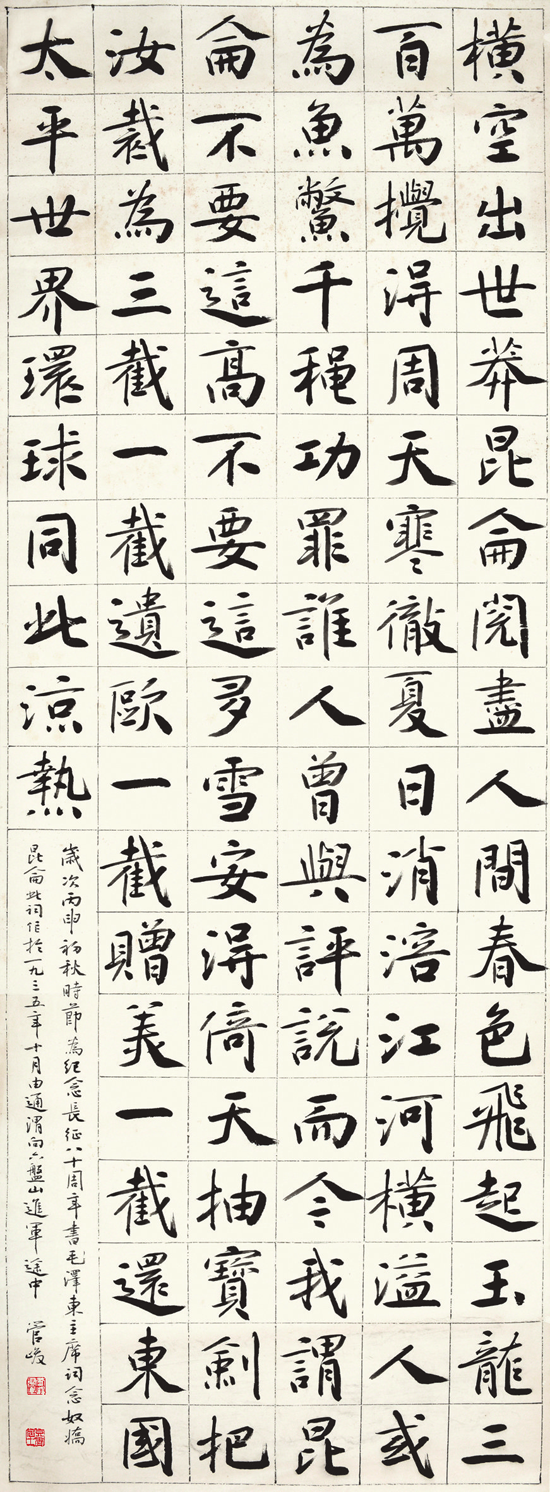 橫空出世莽昆侖閱盡人間春色飛起玉龍三
百萬攪得周天寒徹夏日消溶江河橫溢人或
為魚鱉千穐功罪誰人曾與評說而今我謂昆
侖不要這高不要這多雪安得倚天抽寶劍把
汝裁為三截一截遺歐一截贈美一截還東國
太平世界環球同此涼熱
歲次丙申初秋時節為紀念長征八十周年書毛澤東主席詞念奴嬌
昆侖此詞作於一九三五年十月由通渭向六盤山進軍途中 管峻